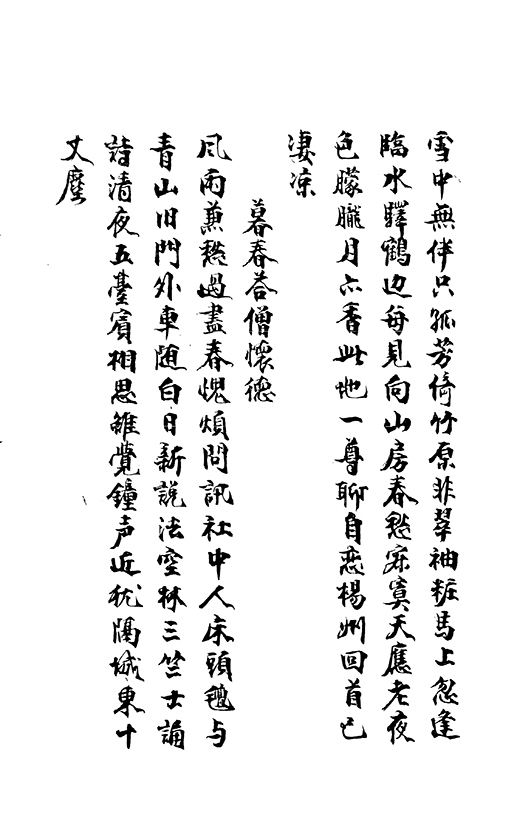 雪中無伴只孤芳倚竹原非翠袖粧馬上忽逢
臨水驛鶴边每見向山房春愁寂寞天應老夜
色朦朧月亦香此地一尊聊自恋楊州回首已
淒凉
暮春荅僧懷德
風雨兼愁過盡春愧煩問訊社中人床頭与
青山旧門外車随白日新説法空林三竺士誦
詩清夜五臺賓相思雖覺鐘声近犹隔城東十
丈塵